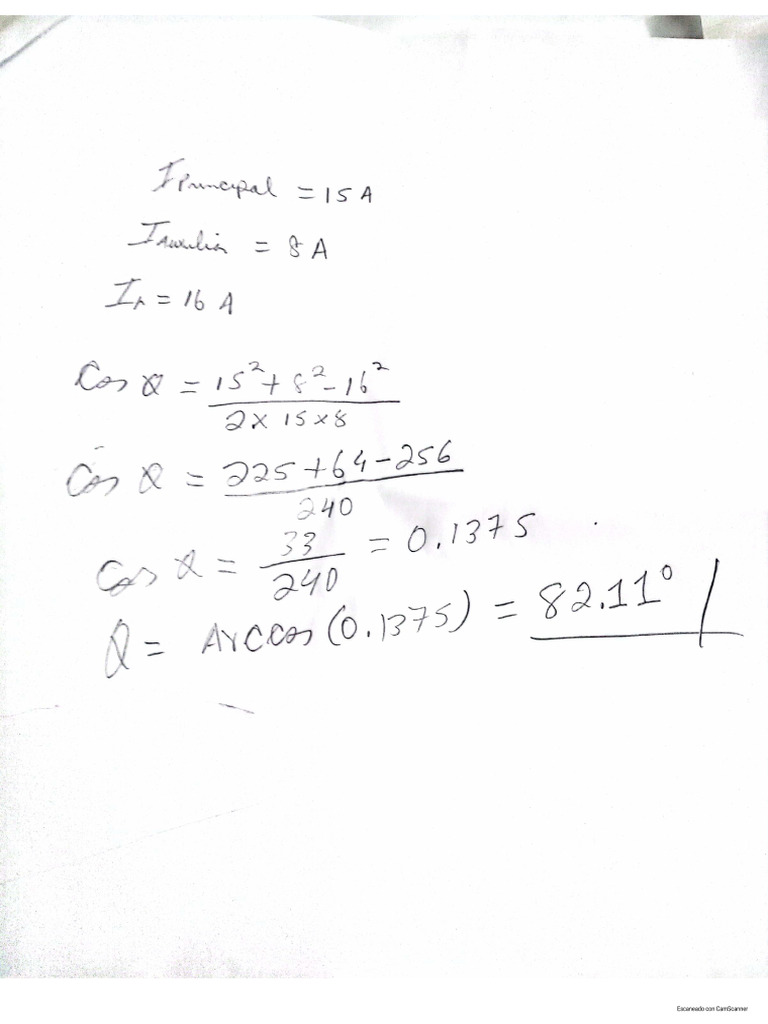 I Principal = 15 A
I Auxilia = 8 A
I A = 16 A
Cos Q = 15² + 8² - 16² / 2 × 15 × 8
Cos Q = 225 + 64 - 256 / 240
Cos Q = 33 / 240 = 0.1375
Q = Arccos (0.1375) = 82.11°
Escaneado con CamScanner